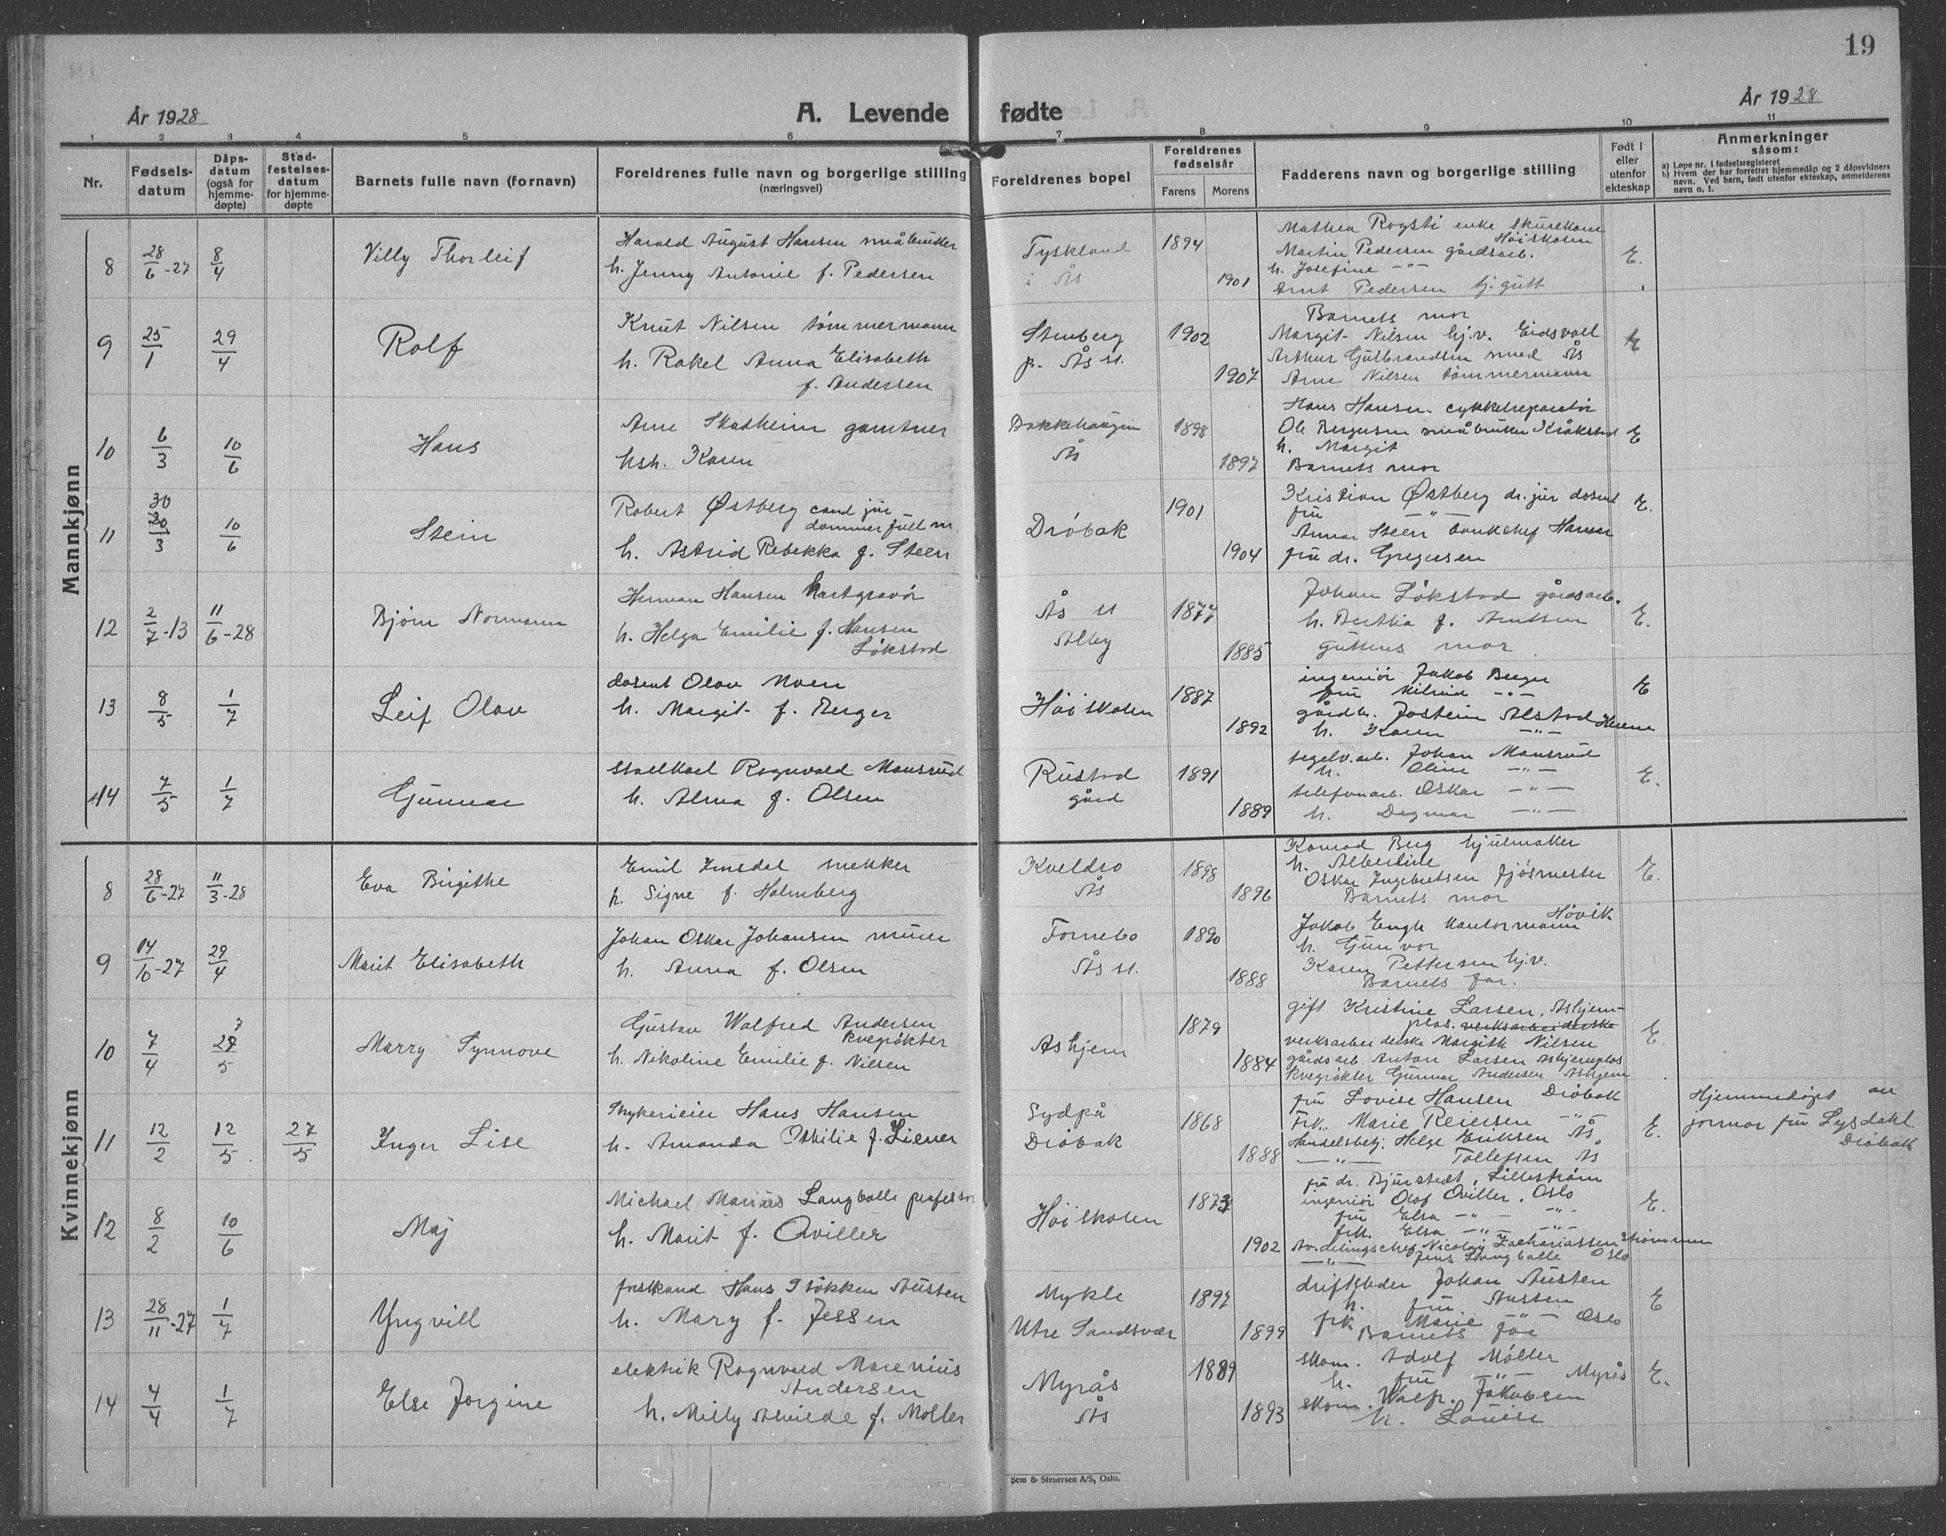 19
År 1928
A. Levende fødte
År 1928
1 2 3 4 5 6 7 8 9 10 11
Nr.
Fødsels-
datum
Dåps-
datum
(også for
hjemme-
døpte)
Stad-
festelses-
datum
for hjemme-
døpte
Barnets fulle navn (fornavn)
Foreldrenes fulle navn og borgerlige stilling
(næringsvei)
Foreldrenes bopel
Foreldrenes
fødselsår
Farens Morens
Fadderens navn og borgerlige stilling
Født i
eller
utenfor
ekteskap
Anmerkninger
såsom:
a) Løpe nr. i fødselsregisteret
b) Hvem der har forrettet hjemmedåp og 2 dåpsvidners
navn. Ved barn, født utenfor ekteskap, anmelderens
navn o. l.
Mannkjønn
8 28/6-27 8/4 Villy Thorleif
Harald August Hansen småbruker
h. Jenny Antonie f. Pedersen
Tyskland
i Ås
1894
1901
Mathea Rogsti enke
Høiskolen
Martin Pedersen gårdsarb.
h. Josefine -"-
Arnt Pedersen tj.gutt
E.
9 25/1 29/4 Rolf
Knut Nilsen tømmermann
h. Rakel Anna Elisabeth
f. Andersen
Stenberg
pr. Ås st.
1902
1907
Barnets mor
Margit Nilsen hj.v. Eidsvoll
Arthur Gulbrandsen smed Ås
Arne Nilsen tømmermann
E
10 6/3 10/6 Hans
Arne Skadheim gartner
hsh. Karen
Bakkehaugen
Ås
1898
1897
Hans Hansen cykkelreparatør
Ole Bergersen småbruker Kråkstad
h. Margit
Barnets mor
E
11 30 30/3 10/6 Stein
Robert Østberg cand jur
dommerfullm.
h. Astrid Rebekka f. Steen
Drøbak
1901
1904
Kristian Østberg dr. jur dosent
fru -"-
Steen bankchef Hamar
fru dr. Gregersen
E.
12 2/7-13 11/6-28 Bjørn Normann
Herman Hansen kartgravør
h. Helga Emilie f. Hansen
Løkstad
Ås st
Alby
1877
1885
Johan Løkstad gårdsarb.
h. Bertha f. Arntsen
guttens mor
E.
13 8/5 1/7 Leif Olav
dosent Olav Moen
h. Margit f. Berger
Høiskolen
1887
1892
ingeniør Jakob Berger
fru Milrid -"-
gårdbr. Jostein Alstad
h. Karen -"-
E
14 7/5 1/7 Gunnar
stallkarl Ragnvald Mansrud
h. Alma f. Olsen
Rustad
gård
1891
1889
teglv.arb. Johan Mansrud
h. Oline -"-
telefonarb. Oskar -"-
h. Dagmar -"-
E.
Kvinnekjønn
8 28/6-27 11/3-28 Eva Birgithe
Emil Imsdal snekker
h. Signe f. Holmberg
Kveldro
Ås
1898
1896
Konrad Berg hjulmaker
h. Albertine
Oskar Ingebretsen fjøsmester
Barnets mor
E.
9 14/10-27 29/4 Marit Elisabeth
Johan Oskar Johansen murer
h. Anna f. Olsen
Fornebo
Ås st.
1890
1888
Høvik
Jakob Engh kontormann
h. Gunvor
Karen Pettersen hj.v.
Barnets far.
10 7/4 27/5 Marry Synnove
Gustav Walfred Andersen
kvegrøkter
h. Nikoline Emilie f. Nilsen
Askjem
1879
1884
gift Kristine Larsen, Askjem-
plas. verksarbeiderske
verksarbeiderske Margith Nilsen
gårdsarb. Anton Larsen Askjemplas
kvegrøkter Gunnar Andersen Askjem
E.
11 12/2 12/5 27/5 Inger Lise
Trykerieier Hans Hansen
h. Amanda Othilie f. Lierer
Sydpå
Drøbak
1868
1888
fru Lovise Hansen Drøbak
Frk. Marie Reiersen -"-
Handelsbetj. Helge Eriksen Ås
-"- Tollefsen Ås
E.
Hjemmedøpt av
jormor fru Lysdahl
Drøbak
12 8/2 10/6 Maj
Michael Marius Langballe professor
h. Marit f. Qviller
Høiskolen
1873
1902
fru dr. Bjurstedt, Lillestrøm
ingeniør Olaf Qviller, Oslo
fru Elsa -"- -"-
frk. Elsa -"- -"-
Avdelingschef Nicolay Zachariassen Strømmen
-"- Langballe Oslo
E.
13 28/11-27 1/7 Yngvill
forstkand Hans Isøkken Austen
h. Mary f. Jessen
Mykle
Ytre Sandsvær
1897
1899
driftsleder Johan Austen
h. fru Austen
frk. Marie -"- Oslo
Barnets far
E
14 4/4 1/7 Else Jorgine
elektrik Ragnvald Marenius
Andersen
h. Milly Alvilde f. Møller
Myrås
Ås
1889
1893
skom. Adolf Møller
h. fru -"- Myrås
skom. Walfr. Jakobsen
h. Louise
E.
Sem & Stenersen A/S, Oslo.